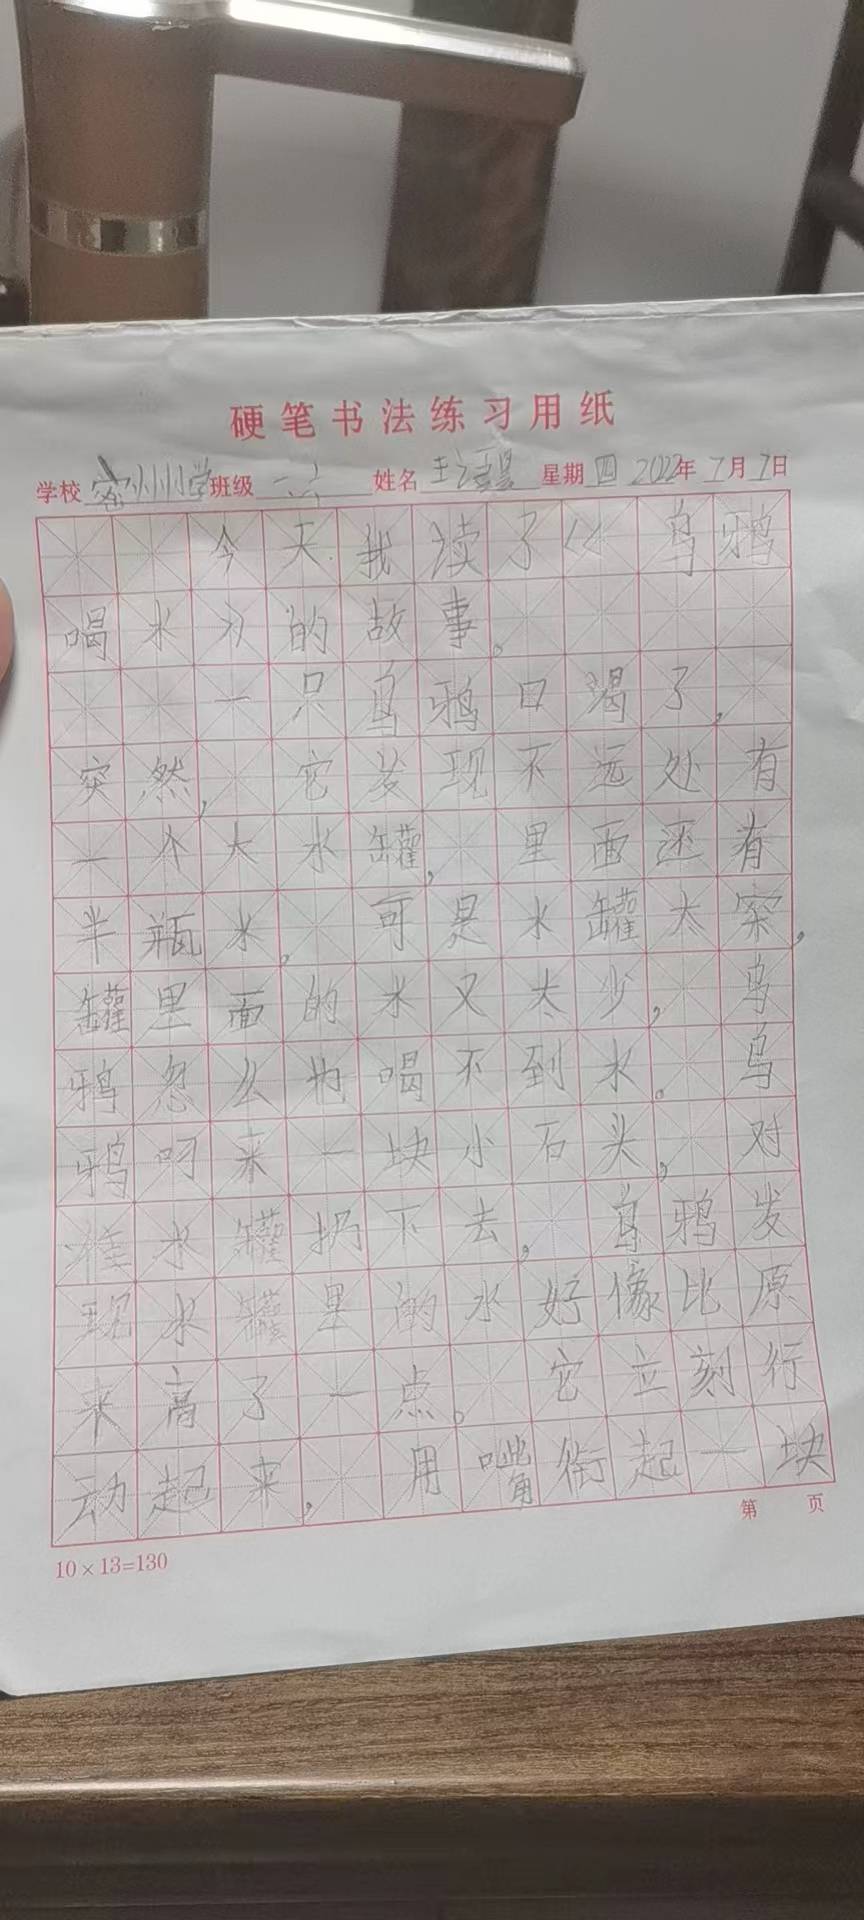 硬笔书法练习用纸
学校 密州小学 班级 一六 姓名 王 星期 四 2022年 7月 7日
今天我读了《乌鸦
喝水》的故事。
一只乌鸦口渴了，
突然，它发现不远处有
一个大水罐，里面还有
半瓶水，可是水罐太深，
罐里面的水又太少，乌
鸦怎么也喝不到水。乌
鸦叼来一块小石头，对
准水罐扔下去，乌鸦发
现水罐里的水好像比原
来高了一点。它立刻行
动起来，用嘴衔起一块
第 页
10×13=130